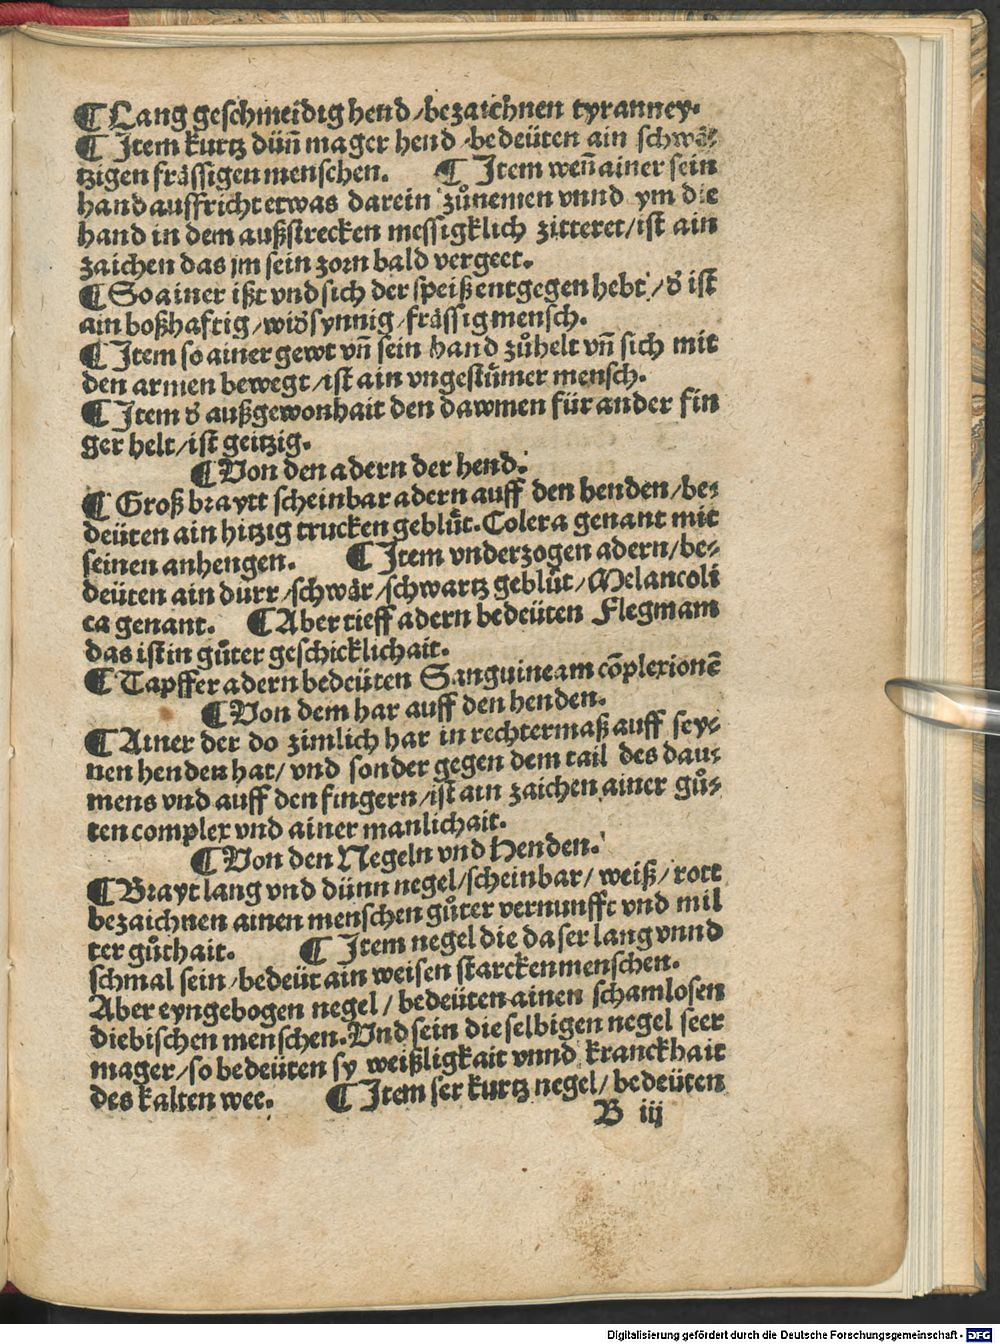 ¶ Lang geschmeidig hend / bezaichnen tyranney.
¶ Item kurtz dün̄ mager hend / bedeüten ain schwä⸗
tzigen frässigen menschen. ¶ Item wen̄ ainer sein
hand auffricht etwas darein zůnemen vnnd ym die
hand in dem außstrecken messigklich zitteret / ist ain
zaichen das jm sein zorn bald vergeet.
¶ So ainer ißt vnd sich der speiß entgegen hebt / d̕ ist
ain boßhafftig / wid̕synnig / frässig mensch.
¶ Item so ainer gewt vn̄ sein hand zůhelt vn̄ sich mit
den armen bewegt / ist ain vngestůmer mensch.
¶ Item d̕ auß gewonhait den dawmen für ander fin
ger helt / ist geitzig.
¶ Von den adern der hend.
¶ Groß braytt scheinbar adern auff den henden / be⸗
deüten ain hitzig trucken geblůt. Colera genant mit
seinen anhengen. ¶ Item vnderzogen adern / be⸗
deüten ain durr / schwär / schwartz geblůt / Melancoli
ca genant. ¶ Aber tieff adern bedeüten Flegmam
das ist in gůter geschicklichait.
¶ Tapffer adern bedeüten Sanguineam cōplexionē
¶ Von dem har auff den henden.
¶ Ainer der do zimlich har in rechter maß auff sey⸗
nen henden hat / vnd sonder gegen dem tail des dau⸗
mens vnd auff den fingern / ist ain zaichen ainer gů⸗
ten complex vnd ainer manlichait.
¶ Von den Negeln vnd Henden.
¶ Brayt lang vnd dünn negel / scheinbar / weiß / rott
bezaichnen ainen menschen gůter vernunfft vnd mil
ter gůthait. ¶ Item negel die da ser lang vnnd
schmal sein / bedeüt ain weisen starcken menschen.
Aber eyngebogen negel / bedeüten ainen schamlosen
diebischen menschen. Vnd sein die selbigen negel seer
mager / so bedeüten sy weißligkait vnnd kranckhait
des kalten wee. ¶ Item ser kurtz negel / bedeüten
B iij
Digitalisierung gefördert durch die Deutsche Forschungsgemeinschaft - DFG